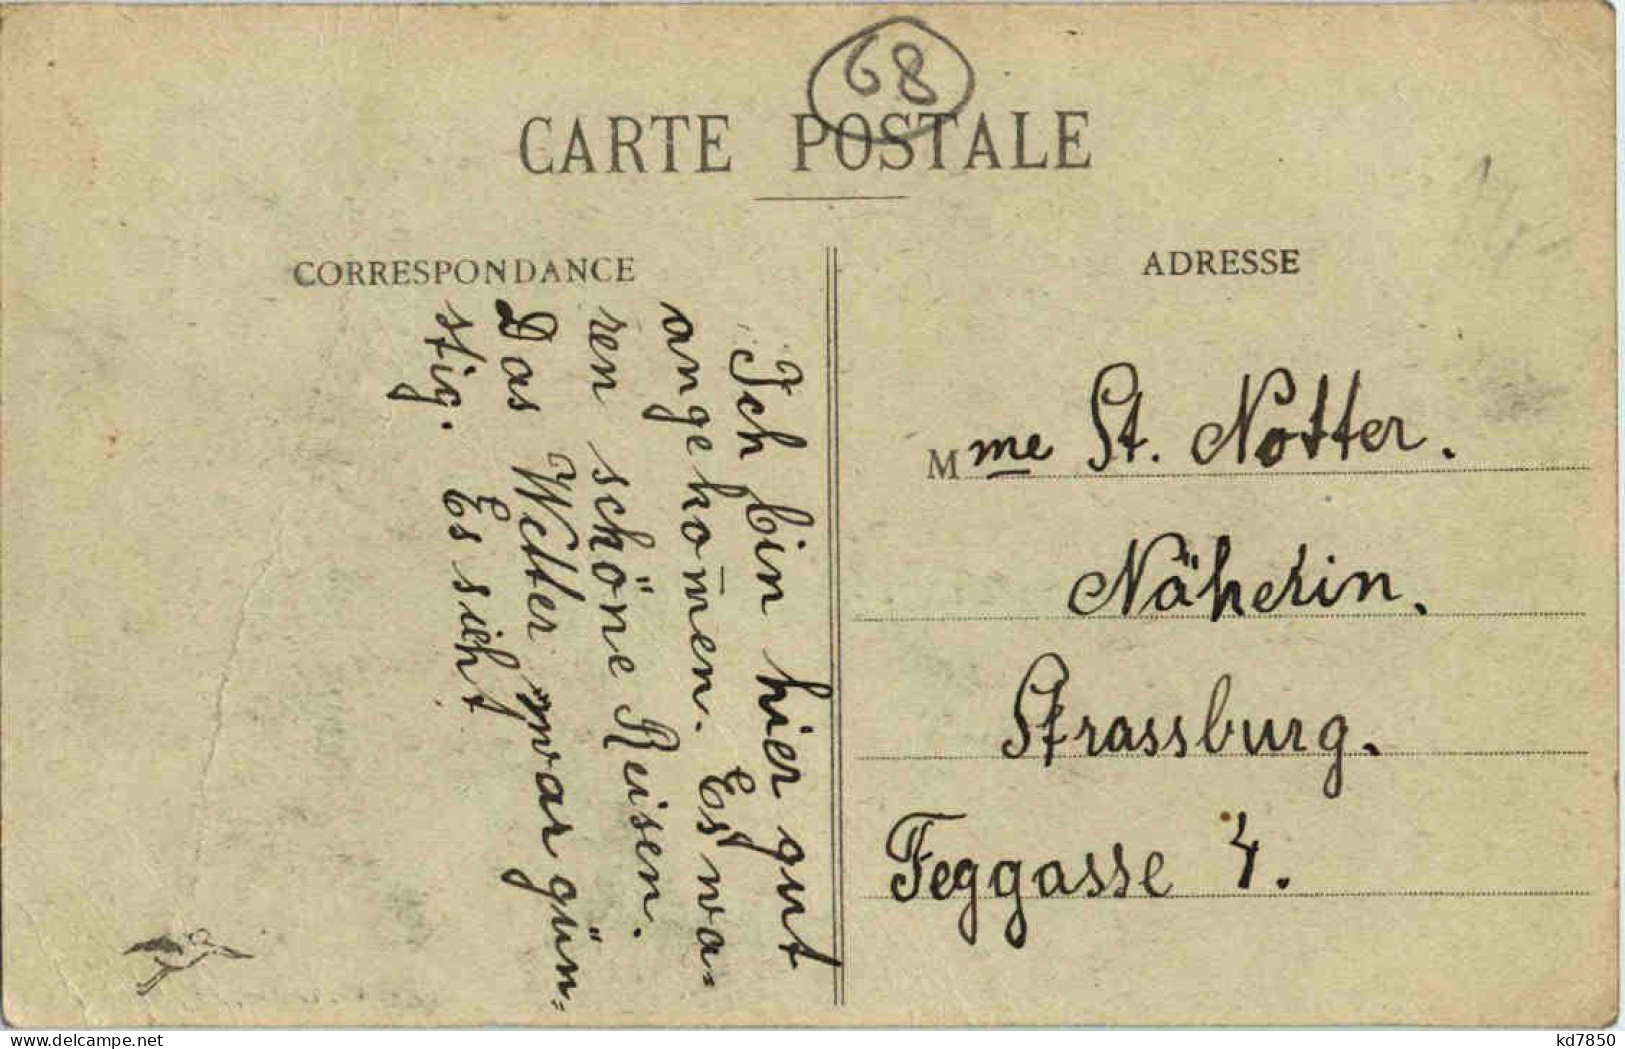 68
CARTE POSTALE
CORRESPONDANCE
Ich bin hier gut
angekom̄en. Es wa-
ren schöne Reisen.
Das Wetter war gün-
stig. Es sieht
ADRESSE
Mme St. Notter.
Näherin.
Strassburg.
Feggasse 4.
www.delcampe.net
kd7850